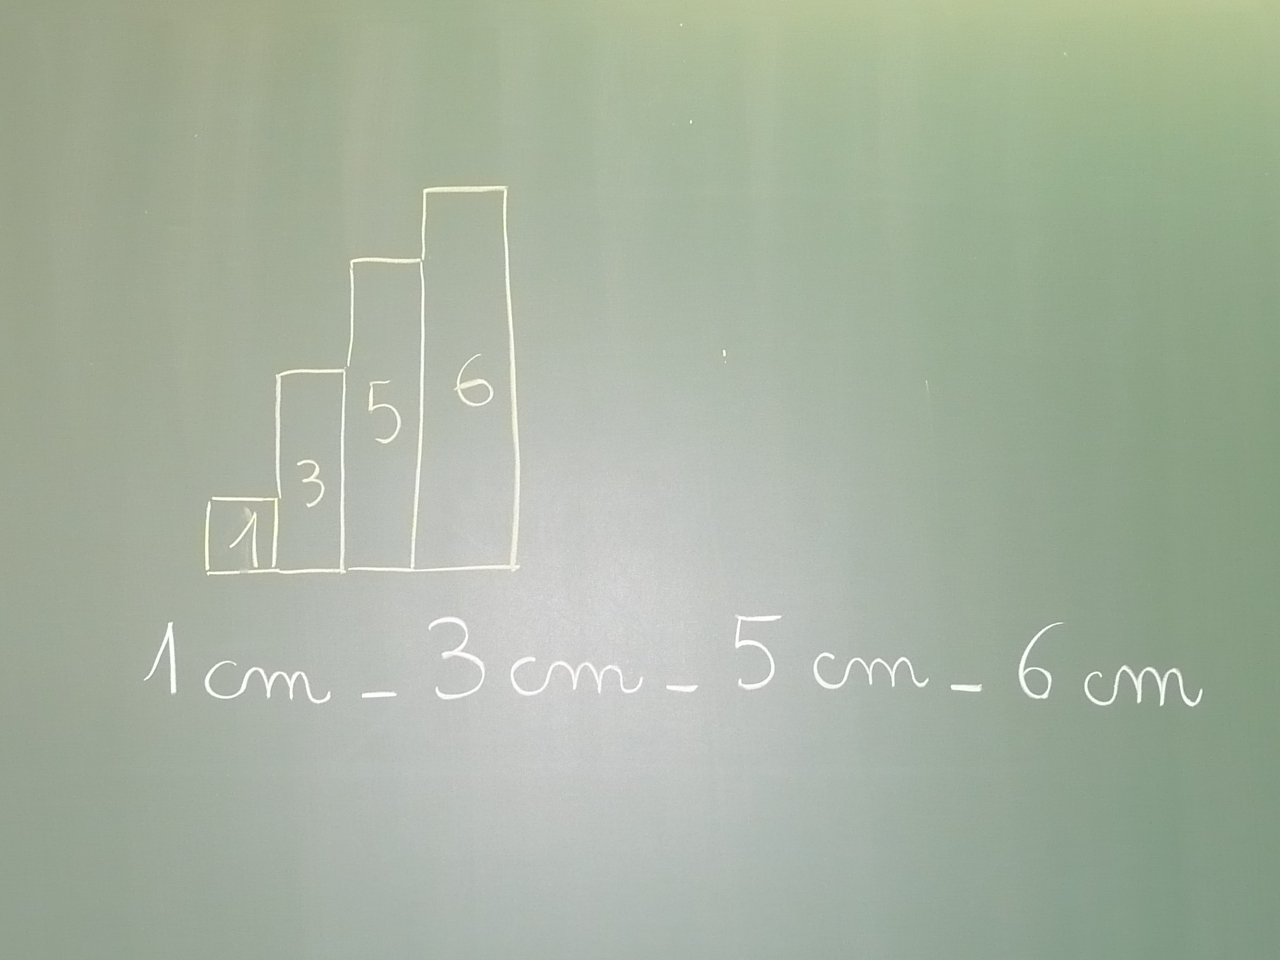 1
3
5
6
1 cm - 3 cm - 5 cm - 6 cm